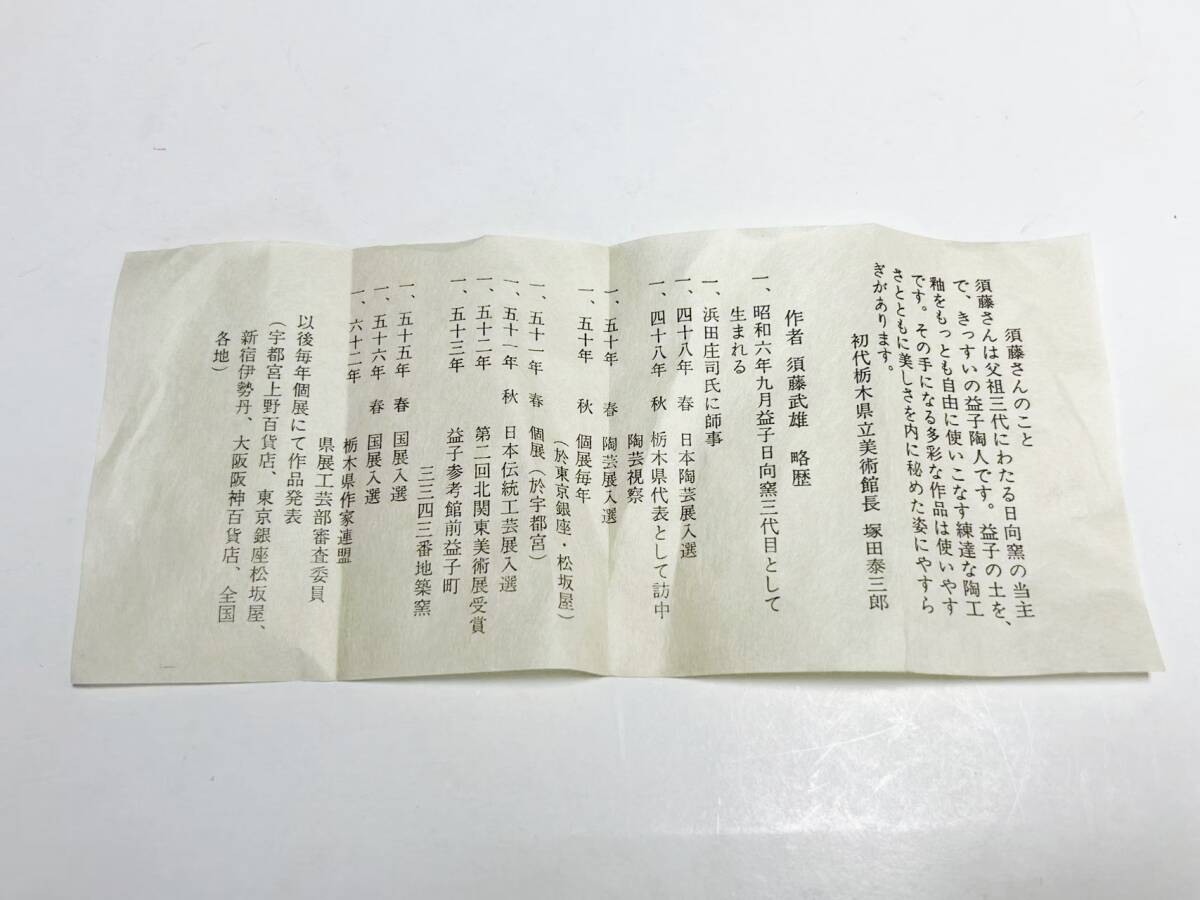 須藤さんのこと
須藤さんは父祖三代にわたる日向窯の当主
で、きっすいの益子陶人です。益子の土を、
釉をもっとも自由に使いこなす練達な陶工
です。その手になる多彩な作品は使いやす
さとともに美しさを内に秘めた姿にやすら
ぎがあります。
初代栃木県立美術館長 塚田泰三郎
作者 須藤武雄 略歴
一、昭和六年九月益子日向窯三代目として
生まれる
一、浜田庄司氏に師事
一、四十八年 春 日本陶芸展入選
一、四十八年 秋 栃木県代表として訪中
陶芸視察
一、五十年 春 陶芸展入選
一、五十年 秋 個展毎年
(於東京銀座・松坂屋)
一、五十一年 春 個展(於宇都宮)
一、五十一年 秋 日本伝統工芸展入選
一、五十二年 第二回北関東美術展受賞
一、五十三年 益子参考館前益子町
三三四三番地築窯
一、五十五年 春 国展入選
一、五十六年 春 国展入選
一、六十二年 栃木県作家連盟
県展工芸部審査委員
以後毎年個展にて作品発表
(宇都宮上野百貨店、東京銀座松坂屋、
新宿伊勢丹、大阪阪神百貨店、全国
各地)